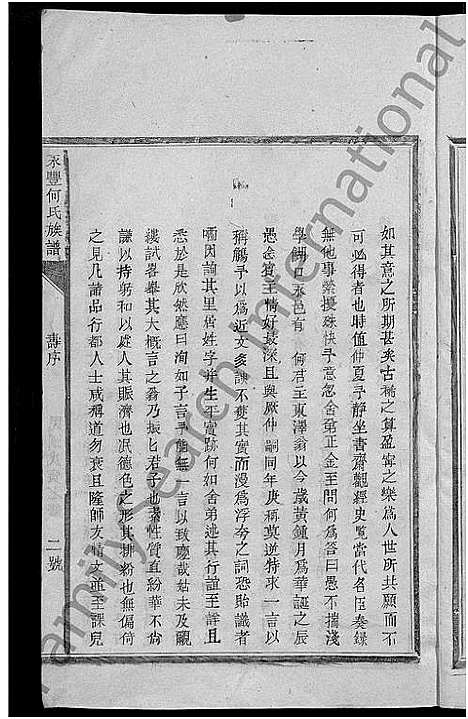 如其意之所期甚矣古稀之算盈寧之樂爲人世所共願而不
可必得者也時值仲夏予靜坐書齋觀經史覽當代名臣奏錄
無他事縈擾殊快予意忽舍弟正金至問何爲答曰愚不揣淺
學餬口永邑有 何君主東澤翁以今歲黃鍾月爲華誕之辰
愚忝賓主情好最深且與厥仲 嗣同年庚稱莫逆特求一言以
稱觴予以爲近文多諛不獲其實而漫爲浮夸之詞恐貽識者
嗤因諭其里居姓字并生平實跡何如舍弟述其行誼至詳且
悉於是欣然應曰洵如子言予能無一言以致慶哉姑未及覼
縷試畧舉其大概言之翁乃振 君子也素性質直紛華不尙
謙以持躬和以處人其賑濟也泯德色之形其排紛也無偏倚
之見凡諸品行都人士咸稱道勿衰且隆師友 文並至課兒
永豐何氏族譜
壽序
二號
Family Search International